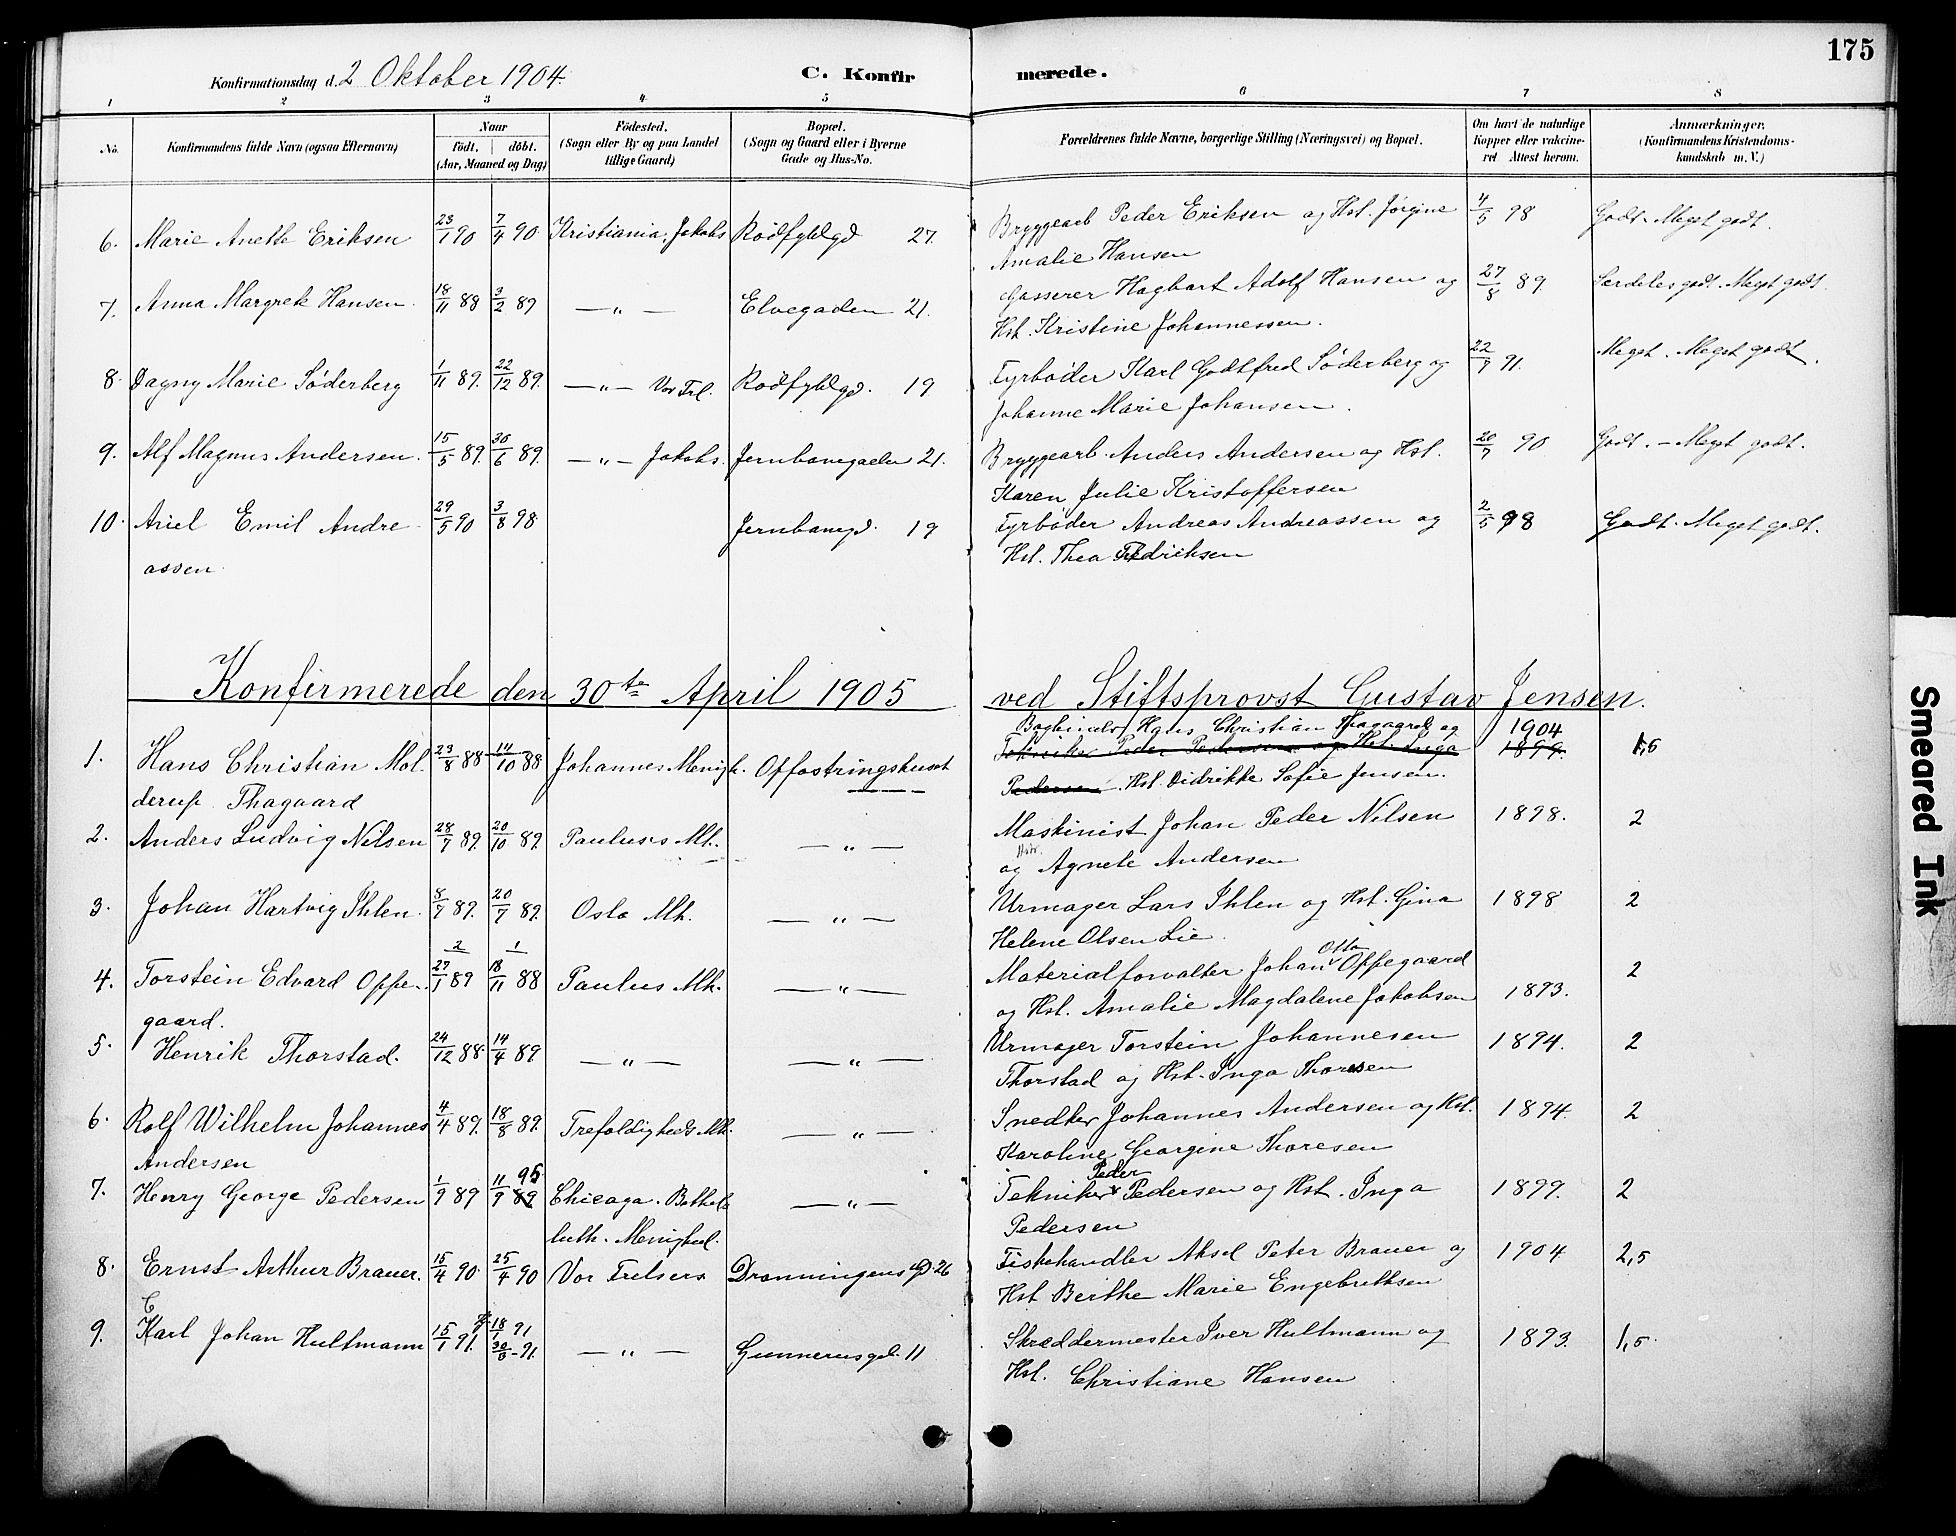 175
Konfirmationsdag d. 2 Oktober 1904. C. Konfir merede.
1 2 3 4 5 6 7 8
No. Konfirmandens fulde Navn (ogsaa Efternavn) Naar Født. døbt. (Aar, Maaned og Dag) Fødested. (Sogn eller By og paa Landet tillige Gaard) Bopæl. (Sogn og Gaard eller i Byerne Gade og Hus-No. Forældrenes fulde Navne, borgerlige Stilling (Næringsvei) og Bopæl. Om havt de naturlige Kopper eller vakcineret Attest herom. Anmærkninger. (Konfirmandens Kristendomskundskab m. V.)
6. Marie Anette Eriksen 23/1 90 7/4 90 Kristiania, Jakobs Rødfyldgd 27. Bryggearb Peder Eriksen og Hst. Jørgine 4/5 98 Godt - Meget godt.
Amalie Hansen
7. Anna Margrete Hansen. 18/11 88 3/2 89 — „ — Elvegaden 21. Gasserer Hagbart Adolf Hansen og 27/8 89. Særdeles godt. Meget godt.
Hst. Kristine Johannessen.
8. Dagny Marie Søderberg 1/11 89. 22/12 89. — „ — Vor Frl. Rødfyldgd. 19 Fyrbøder Karl Godtfred Søderberg og 22/9 91. Meget. Meget godt.
Johanne Marie Johansen.
9. Alf Magnus Andersen. 15/5 89. 30/6 89. — „ — Jakobs. Jernbanegaden 21. Bryggearb. Anders Andersen og Hst. 20/7 90 Godt. — Meget godt.
Karen Julie Kristoffersen
10. Ariel Emil Andre 29/5 90 3/8 98 Jernbanegd. 19 Fyrbøder Andreas Andreassen og 2/5 98 Godt. Meget godt.
assen. Hst. Thea Fredriksen
Konfirmerede den 30te April 1905 ved Stiftsprovst Gustav Jensen.
1. Hans Christian Mol- 23/8 88 14/10 88 Johannes Menigh. Opfostringshuset Bogbinder Hans Christian Thagaard og 1904
Tekniker Peder Pedersen og Hst. Inga 1899. 1,5
derup Thagaard Pedersen. Hst. Didrikke Sofie Jensen.
2. Anders Ludvig Nilsen 28/7 89. 20/10 89. Paulus's Mh. — „ — Maskinist Johan Peder Nilsen 1898. 2
og Hstr. Agnete Andersen
3. Johan Hartvig Ihlen. 8/7 89. 20/7 89. Oslo Mh. — „ — Urmager Lars Ihlen og Hst. Gina 1898 2
Helene Olsen Lie.
2 1
4. Torstein Edvard Oppe- 27/1 89 18/11 88 Paulus Mh. — „ — Materialforvalter Johan Otto Oppegaard 2
gaard. og Hst. Amalie Magdalene Jakobsen 1893.
5. Henrik Thorstad. 24/12 88. 14/4 89 — „ — — „ — Urmager Torstein Johannesen 1894. 2
Thorstad og Hst. Inga Thoresen
6. Rolf Wilhelm Johannes 4/4 89. 18/8 89. Trefoldigheds Mh. — „ — Snedker Johannes Andersen og Hst. 1894. 2
Andersen Karoline Georgine Thoresen
7. Henry George Pedersen 1/9 89 11/9 89 95 Chicago. Bethel — „ — Tekniker Peder Pedersen og Hst. Inga 1899. 2
luth. Menighed. Pedersen
8. Ernst Arthur Brauer. 15/4 90. 25/4 90 Vor Frelsers Dronningens gd 26 Fiskehandler Aksel Peter Brauer og 1904 2,5
Hst Berthe Marie Engebrethsen
C
9. Karl Johan Hultmann 15/1 91. 18/1 91 30/3 - 91. — „ — Gunnerusgd. 11 Skræddermester Iver Hultmann og 1893. 1,5.
Hst. Christiane Hansen
Smeared Ink